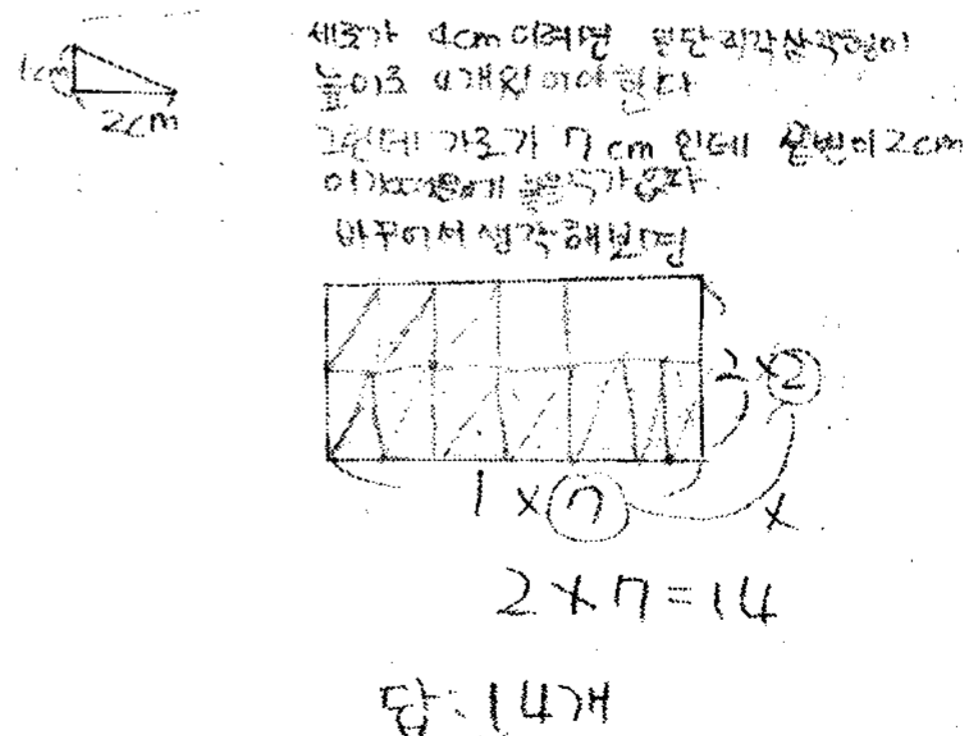 1cm
2cm
세로가 4cm 이려면 일단 직각삼각형이
높이로 4개 있어야 한다
그런데 가로가 7cm 인데 밑변이 2cm
이기 때문에 놓을 수가 없다.
바꾸어서 생각해보면
2 × 2
1 × 7
×
2 × 7 = 14
답 : 14개